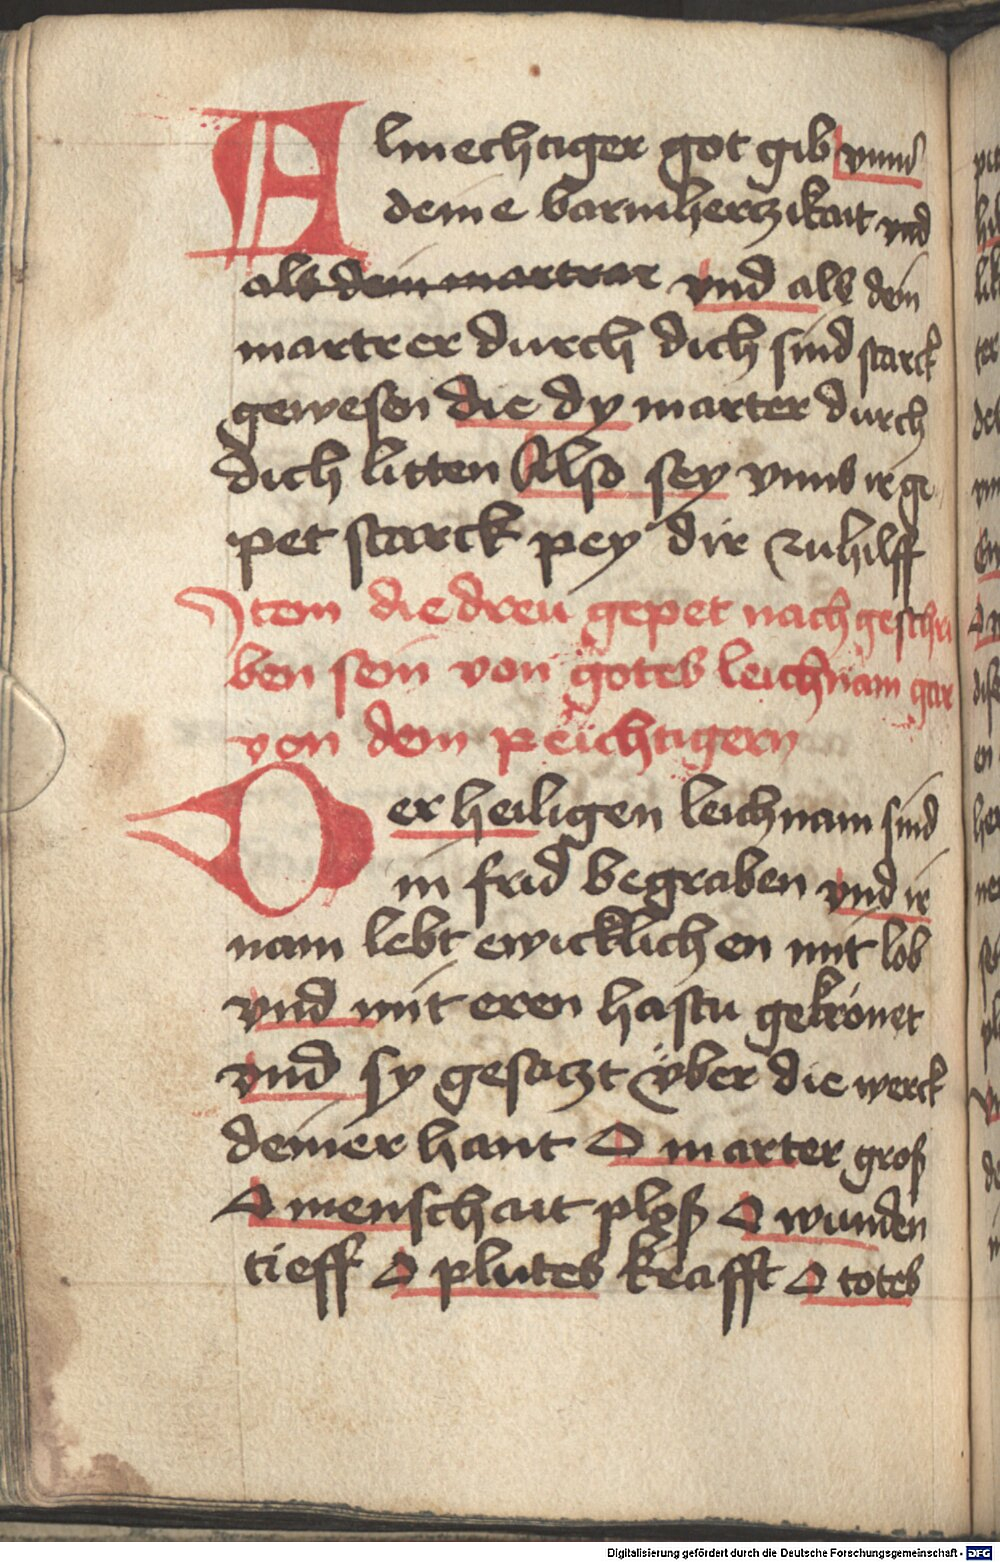 Almechtiger got gib vnns
deine barmherczikait vnd
als dein martrar vnd als dein
martrer durch dich sind starck
gewesen die dy marter durch
dich litten Also sey vnns ir ge
pet starck pey dir zuhilff
Item die dreu gepet nach geschri
ben sein von gotes leichnam gar
von dem peichtigern
Der heiligen leichnam sind
in frid begraben vnd ir
nam lebt ewicklichen mit lob
vnd mit eren hastu gekrönet
vnd sy gesaczt über die werck
deiner hant O marter groß
O menschait ploß O wunden
tieff O plutes krafft O totes
Digitalisierung gefördert durch die Deutsche Forschungsgemeinschaft - DFG